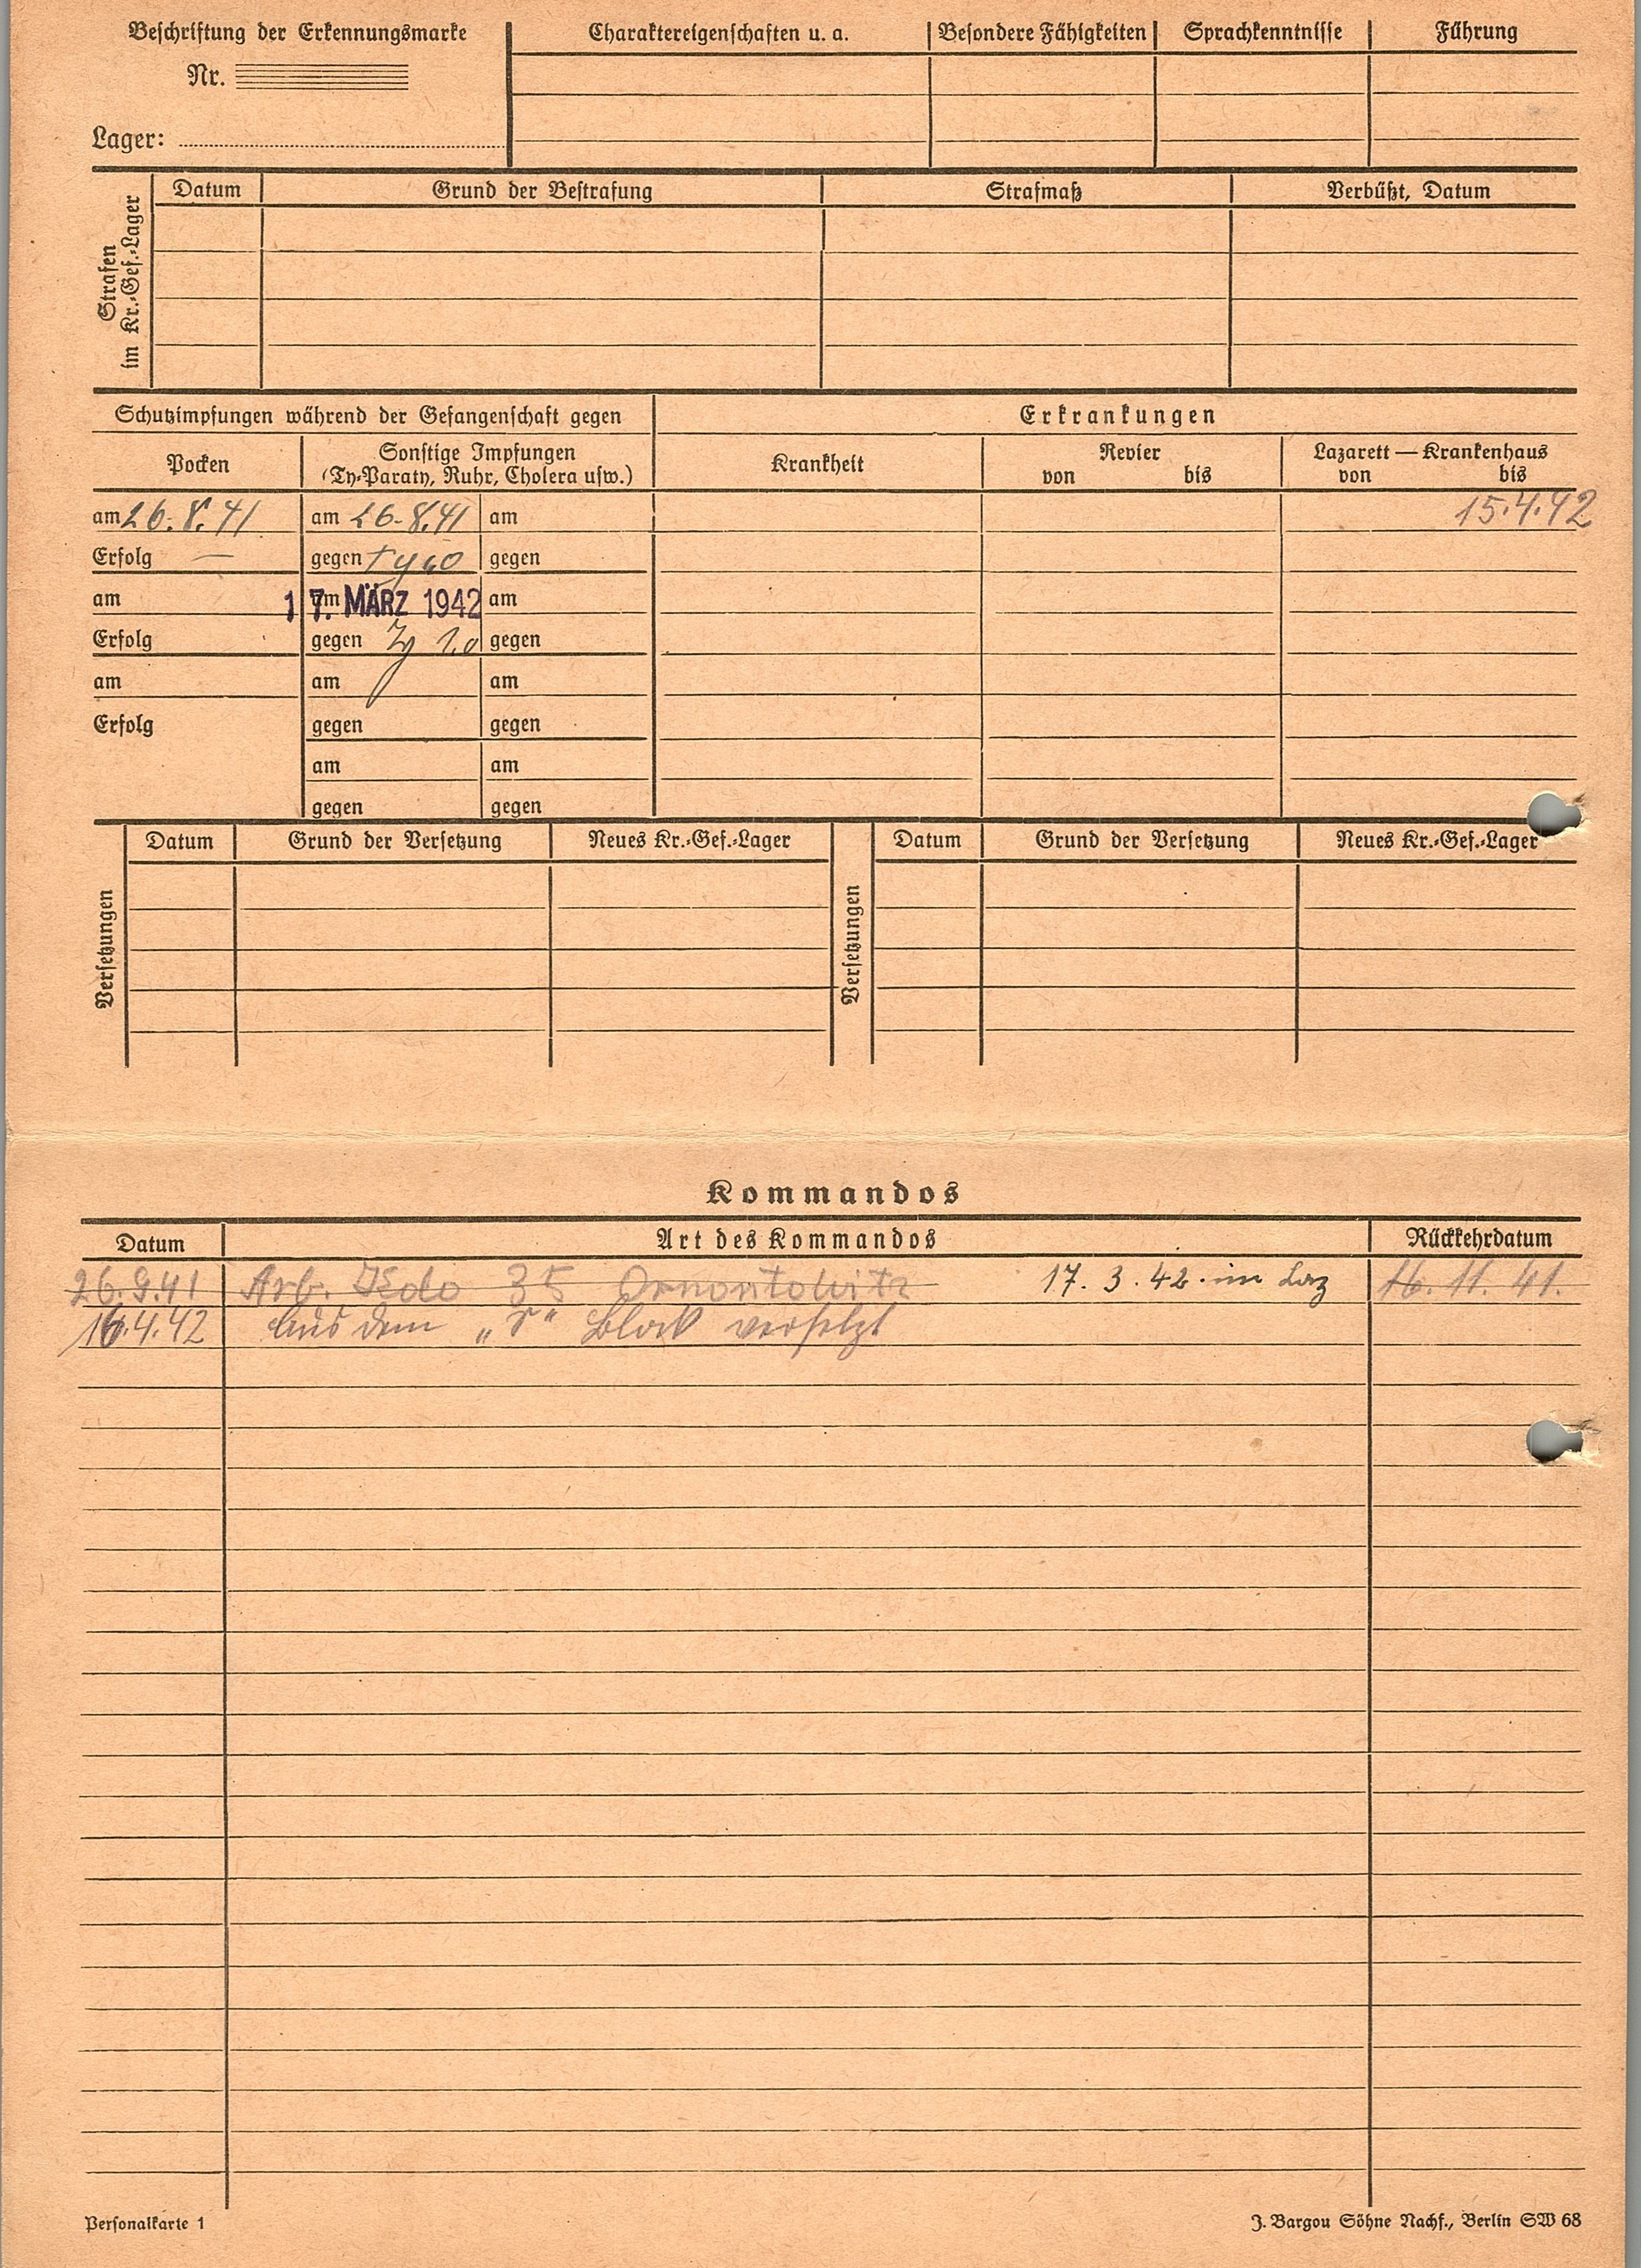 Beschriftung der Erkennungsmarke
Nr.
Lager:
Charaktereigenschaften u. a. Besondere Fähigkeiten Sprachkenntnisse Führung
Strafen im Kr.-Gef.-Lager
Datum Grund der Bestrafung Strafmaß Verbüßt, Datum
Schutzimpfungen während der Gefangenschaft gegen Erkrankungen
Pocken Sonstige Impfungen Krankheit Revier Lazarett — Krankenhaus
(Ty-Paraty, Ruhr, Cholera usw.) von bis von bis
am 26.8.41 am 26.8.41 am 15.4.42
Erfolg — gegen gegen
am am 17. MÄRZ 1942 am
Erfolg gegen gegen
am am am
Erfolg gegen gegen
am am
gegen gegen
Versetzungen Datum Grund der Versetzung Neues Kr.-Gef.-Lager Versetzungen Datum Grund der Versetzung Neues Kr.-Gef.-Lager
Kommandos
Datum Art des Kommandos Rückkehrdatum
26.9.41 Arb. Kdo 35 Ornontowitz 17. 3. 42. im Laz 16. 11. 41.
16.4.42 Aus dem Block versetzt
Personalkarte 1 J. Bargou Söhne Nachf., Berlin SW 68